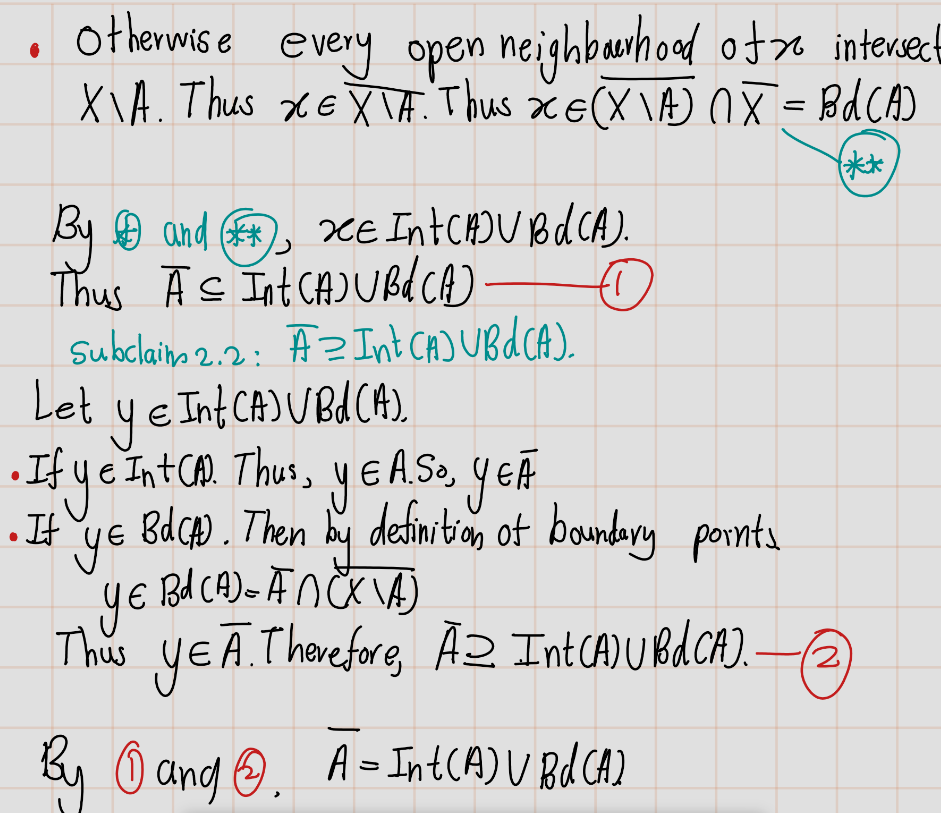 • Otherwise every open neighbourhood of x intersect
X\A. Thus x ∈ \overline{X\A}. Thus x ∈ \overline{(X\A)} ∩ \overline{X} = Bd(A)
**
By * and **, x ∈ Int(A) ∪ Bd(A).
Thus \overline{A} ⊆ Int(A) ∪ Bd(A) — 1
Subclaim 2.2: \overline{A} ⊇ Int(A) ∪ Bd(A).
Let y ∈ Int(A) ∪ Bd(A).
• If y ∈ Int(A). Thus, y ∈ A. So, y ∈ \overline{A}
• If y ∈ Bd(A). Then by definition of boundary points
y ∈ Bd(A) = \overline{A} ∩ \overline{(X\A)}
Thus y ∈ \overline{A}. Therefore, \overline{A} ⊇ Int(A) ∪ Bd(A). — 2
By 1 and 2, \overline{A} = Int(A) ∪ Bd(A)